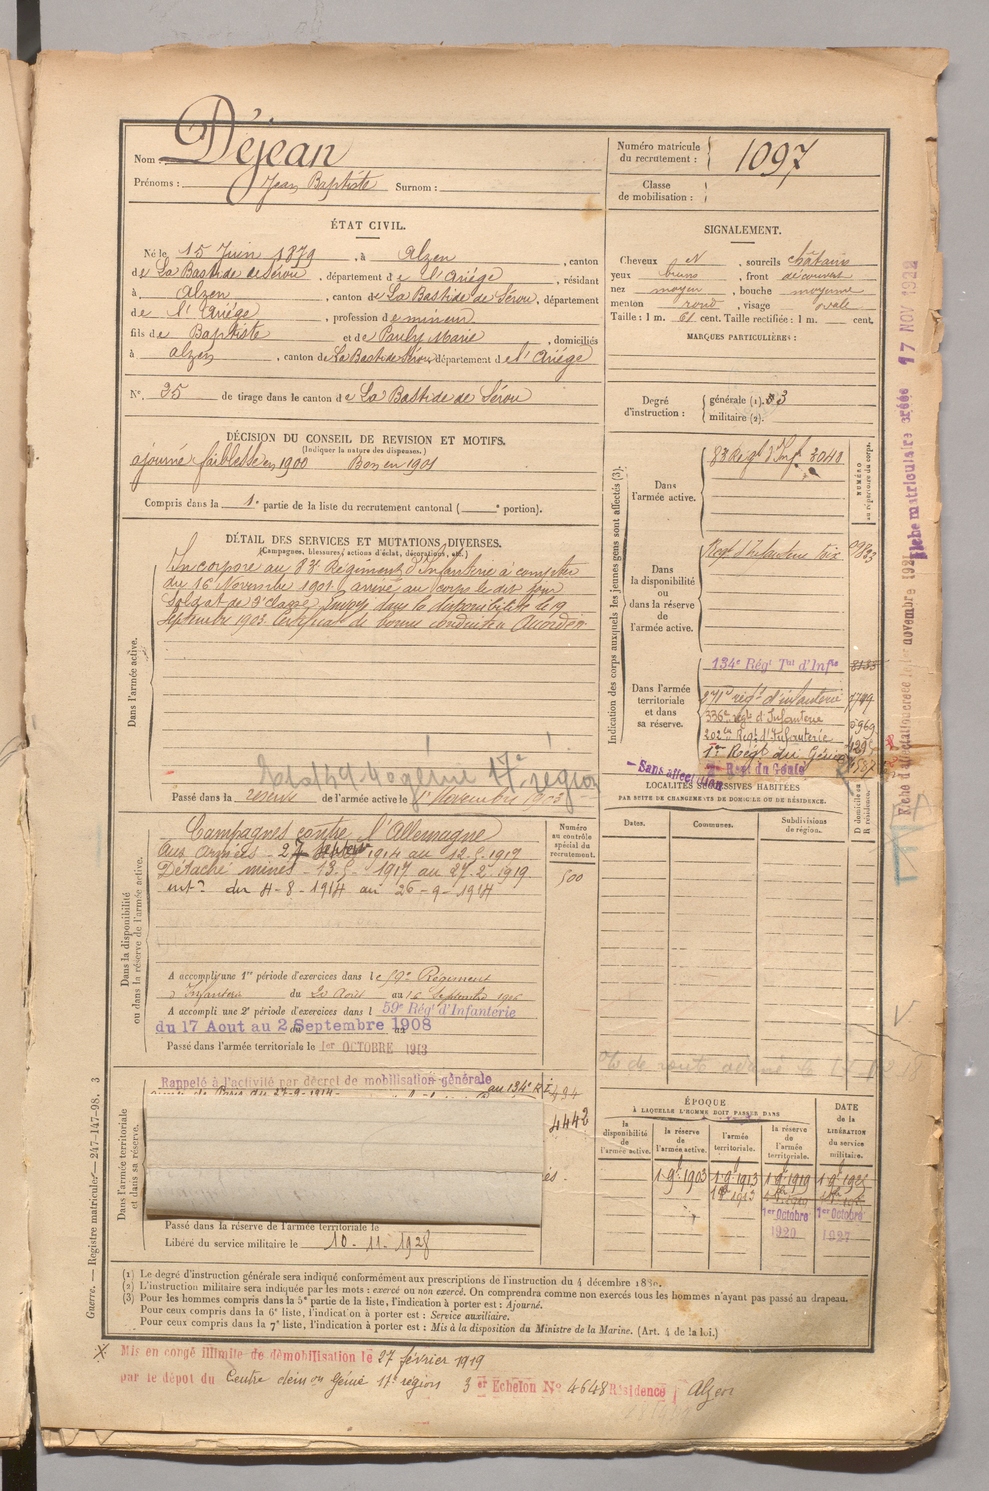 Nom : Déjean
Prénoms : Jean Baptiste Surnom :
Numéro matricule du recrutement : 1097
Classe de mobilisation :
ÉTAT CIVIL.
Né le 15 Juin 1879, à Alzen, canton
de La Bastide de Sérou, département de l'Ariége, résidant
à Alzen, canton de La Bastide de Sérou, département
de l'Ariége, profession de mineur
fils de Baptiste et de Marie, domiciliés
à Alzen, canton de La Bastide Sérou département de l'Ariége
N° 35 de tirage dans le canton de La Bastide de Sérou
SIGNALEMENT.
Cheveux N, sourcils châtains
yeux bruns, front découvert
nez moyen, bouche moyenne
menton rond, visage ovale
Taille : 1 m. 61 cent. Taille rectifiée : 1 m. cent.
MARQUES PARTICULIÈRES :
Degré d'instruction : générale (1). 3
militaire (2).
DÉCISION DU CONSEIL DE REVISION ET MOTIFS.
(Indiquer la nature des dispenses.)
ajourné faiblesse en 1900 Bon en 1901
Compris dans la 1e partie de la liste du recrutement cantonal ( e portion).
DÉTAIL DES SERVICES ET MUTATIONS DIVERSES.
(Campagnes, blessures, actions d'éclat, décorations, etc.)
Dans l'armée active.
Incorporé au 83e Régiment d'Infanterie à compter
du 16 Novembre 1901 arrivé au corps le dit jour
Soldat de 2e classe, Envoyé dans la disponibilité le 19
Septembre 1903. Certificat de bonne conduite Accordé
17e région
Passé dans la réserve de l'armée active le 1r Novembre 1903
Indication des corps auxquels les jeunes gens sont affectés (3).
NUMÉRO au répertoire du corps.
Dans l'armée active.
83 Régt d'Inf. 3040
Dans la disponibilité ou dans la réserve de l'armée active.
Régt d'Infanterie Foix
Dans l'armée territoriale et dans sa réserve.
134e Régt Tal d'Infie
271e régt d'infanterie
336e régt d'Infanterie
202e Régt d'Infanterie
1er Régt du Génie
Regt du Génie
Sans affectation
Fiche matriculaire créée 17 NOV 1922
LOCALITÉS SUCCESSIVES HABITÉES
PAR SUITE DE CHANGEMENTS DE DOMICILE OU DE RÉSIDENCE.
Dates. Communes. Subdivisions de région.
D domicile ou R résidence.
Dans la disponibilité ou dans la réserve de l'armée active.
Numéro au contrôle spécial du recrutement.
500
Campagnes contre l'Allemagne
Aux armées - 27 septembre 1914 au 12-5-1917
Détaché mines - 13-5-1917 au 27-2-1919
intr du 4-8-1914 au 26-9-1914
A accompli une 1re période d'exercices dans le 59e Régiment
d'Infanterie du 20 Août au 16 Septembre 1906
A accompli une 2e période d'exercices dans l 59e Régt d'Infanterie
du 17 Aout au 2 Septembre 1908
Passé dans l'armée territoriale le 1er OCTOBRE 1913
Dans l'armée territoriale et dans sa réserve.
Rappelé à l'activité par décret de mobilisation générale
au 134e R I
4442
Passé dans la réserve de l'armée territoriale le
Libéré du service militaire le 10-11-1928
ÉPOQUE
À LAQUELLE L'HOMME DOIT PASSER DANS
la disponibilité de l'armée active.
la réserve de l'armée active.
l'armée territoriale.
la réserve de l'armée territoriale.
DATE de la LIBÉRATION du service militaire.
1 9bre 1903 1 9bre 1913 1 9bre 1919
1er Octobre 1920
1er Octobre 1927
Guerre. — Registre matricule — 247-147-98. 3
(1) Le degré d'instruction générale sera indiqué conformément aux prescriptions de l'instruction du 4 décembre 1889.
(2) L'instruction militaire sera indiquée par les mots : exercé ou non exercé. On comprendra comme non exercés tous les hommes n'ayant pas passé au drapeau.
(3) Pour les hommes compris dans la 5e partie de la liste, l'indication à porter est : Ajourné.
Pour ceux compris dans la 6e liste, l'indication à porter est : Service auxiliaire.
Pour ceux compris dans la 7e liste, l'indication à porter est : Mis à la disposition du Ministre de la Marine. (Art. 4 de la loi.)
Mis en congé illimité de démobilisation le 27 février 1919
par le dépot du Centre démon Génie 17e région 3 er Echelon No 4648 Résidence Alzen